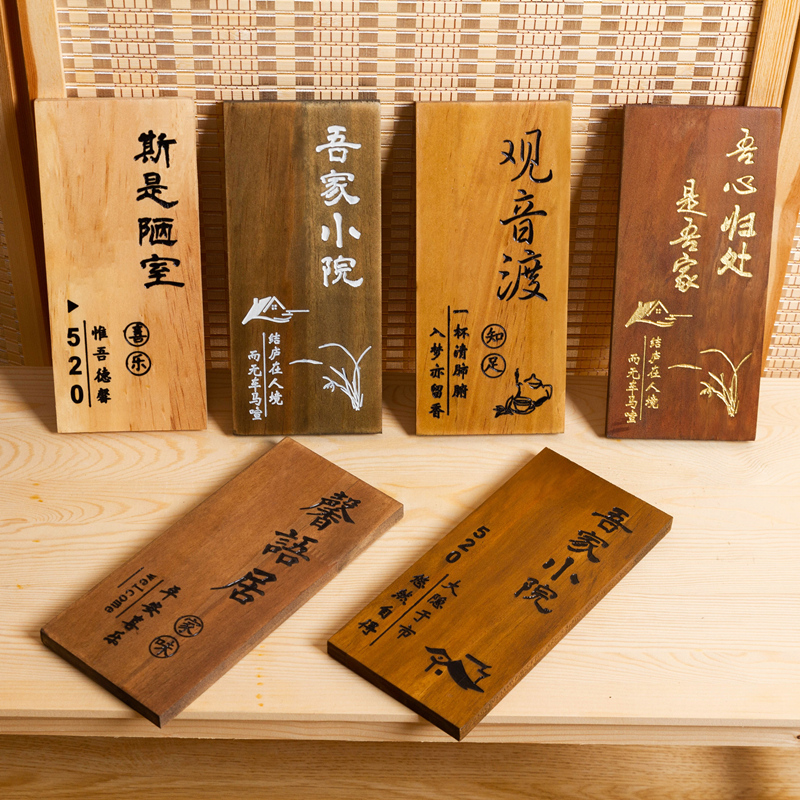 斯是陋室
喜乐
惟吾德馨
520
吾家小院
结庐在人境
而无车马喧
观音渡
知足
一杯清肺腑
入梦亦留香
吾心归处
是吾家
结庐在人境
而无车马喧
馨語居
家味
平安喜乐
Welcome
吾家小院
520
大隐于市
悠然自得